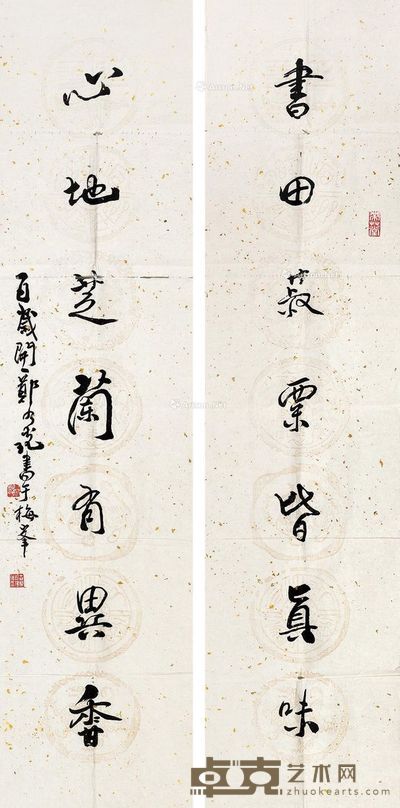 書田菽粟皆真味
心地芝蘭有異香
百歲開一鄭乃珖書于梅峯
卓克艺术网
zhuokearts.com